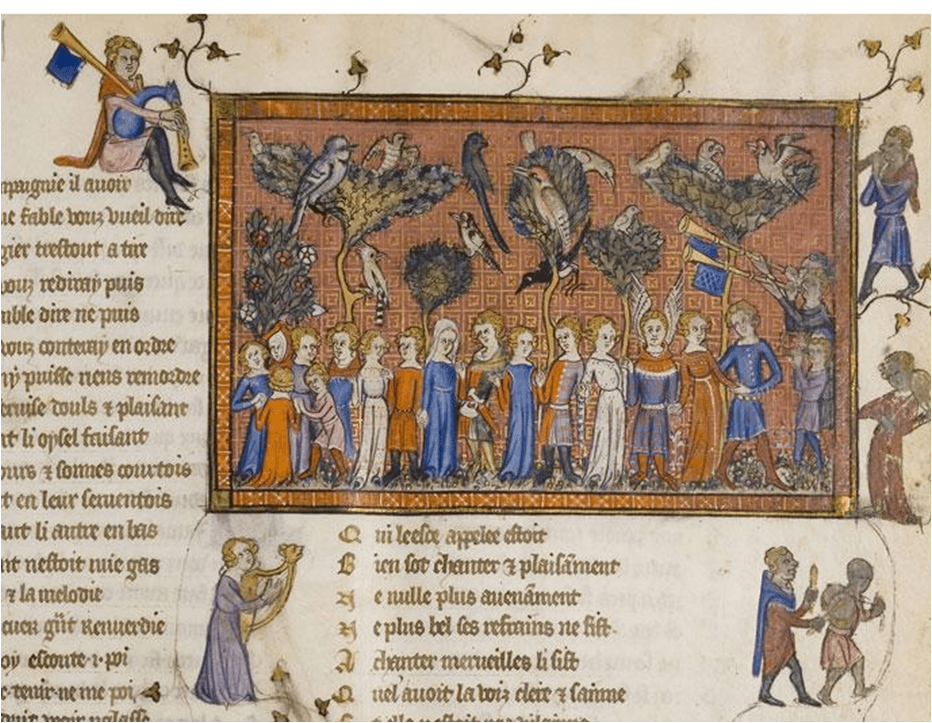 mpagnie il auoit
ne fable vouz vueil dire
gier trestout a tire
vouz rediray puis
mble dire ne puis
vouz conteray en ordre
ny puisse riens remordre
eruise douls ⁊ plaisant
nt li oysel faisant
ours ⁊ sonnes courtois
t en leur seruentois
aut li autre en bas
nt nestoit mie gas
⁊ la melodie
cuer gñt renuerdie
oy escoute .i. poi
e tenir ne me poi
Q ui leesce appelee estoit
B ien sot chanter ⁊ plaisāment
N e nulle plus auenāment
N e plus bel ses refrains ne fist
A chanter merueilles li sist
Q uel auoit la voiz clere ⁊ sainne